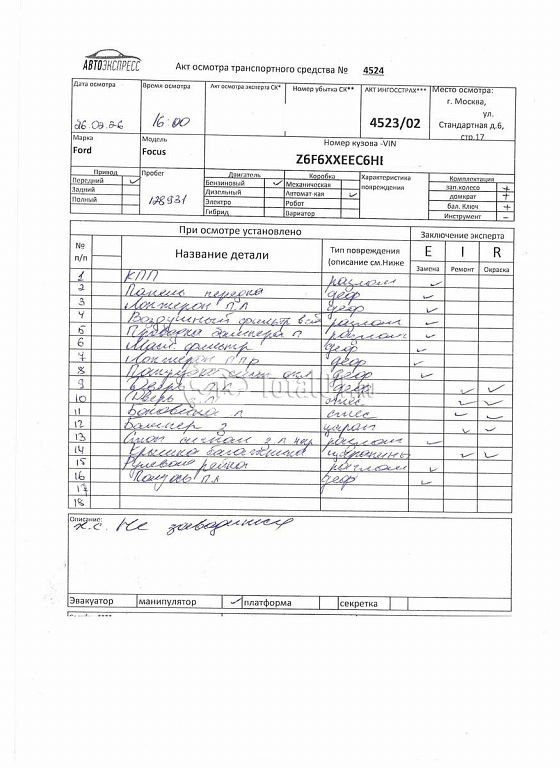 АВТОЭКСПРЕСС
Акт осмотра транспортного средства № 4524
Дата осмотра
Время осмотра
Акт осмотра эксперта СК*
Номер убытка СК**
АКТ ИНГОССТРАХ***
Место осмотра:
г. Москва,
ул.
Стандартная д.6,
стр.17
16:00
4523/02
Марка
Модель
Номер кузова -VIN
Ford
Focus
Z6F6XXEEC6HI
Привод
Пробег
Двигатель
Коробка
Характеристика
повреждения
Комплектация
Передний
Бензиновый
Механическая
зап.колесо +
Задний
128931
Дизельный
Автомат-кая
домкрат +
Полный
Электро
Робот
бал. Ключ +
Гибрид
Вариатор
Инструмент -
При осмотре установлено
Заключение эксперта
№
п/п
Название детали
Тип повреждения
(описание см.Ниже
E I R
Замена Ремонт Окраска
1 КПП разлом
2 Панель передка деф
3 Лонжерон П Л деф
4 Воздушный фильтр разлом
5 Проводка бампера п разлом
6 фильтр деф
7 Лонжерон П ПР деф
8 деф
9 Дверь деф
10 Дверь
11 Боковина л
12 Бампер з царап
13 Стоп сигнал з л нар разлом
14 Крышка багажника царапины
15 Рулевая рейка разлом
16 Полуось П Л деф
17
18
Описание:
Не заводится
Эвакуатор
манипулятор
платформа
секретка